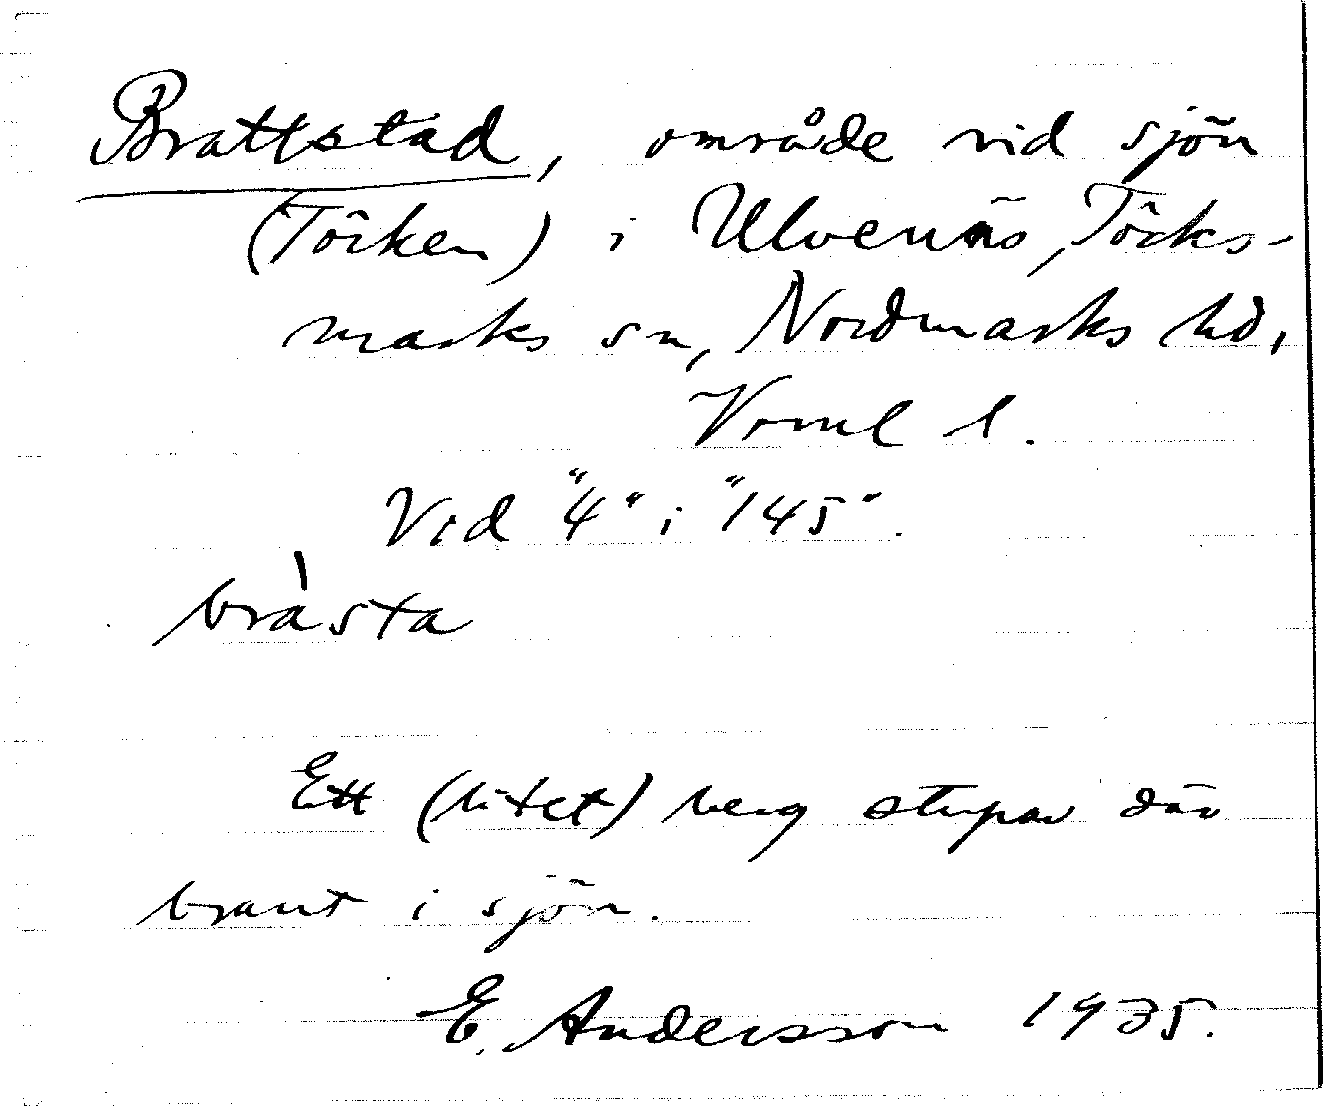 Brattstad, område vid sjön
(Töcken) i Ulvenäs, Töcks-
marks sn, Nordmarks hd,
Vrml l.
Vid "4" i "145".
bràsta
Ett (litet) berg stupar där
brant i sjön.
E. Andersson 1935.